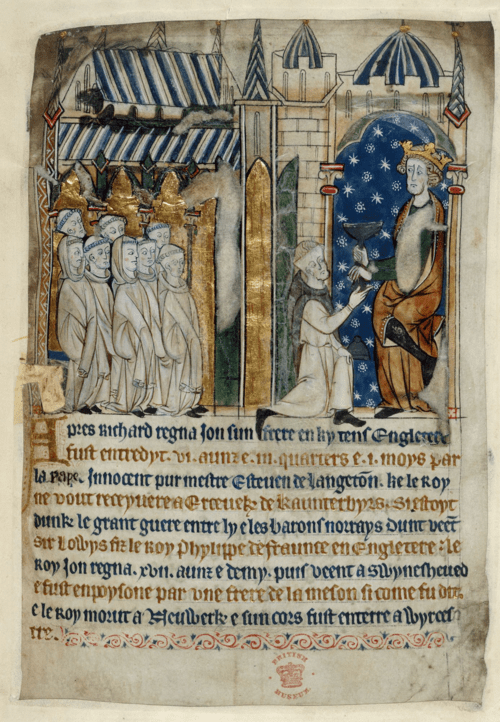 Apres Richard regna Jon sun frere en ky tens Engletere
fust entredyt .vi. aunz e .iii. quarters e .i. moys par
la pape Innocent pur mestre Esteven de Langeton ke le Roy
ne vout receyvere a Ercevek de Kaunterbyrs. Si estoyt
dunk le grant guere entre ly e les barons norrays dunt veent
Sir Lowys fiz le Roy Phylippe de Fraunce en Engletere. le
Roy Jon regna .xvii. aunz e demy. puis veent a Swynesheued
e fust enpoysone par une frere de la meson si come fu dit.
e le Roy morut a Neuwerk e sun cors fust enterre a Wyrces
tre.
BRITISH
MUSEUM